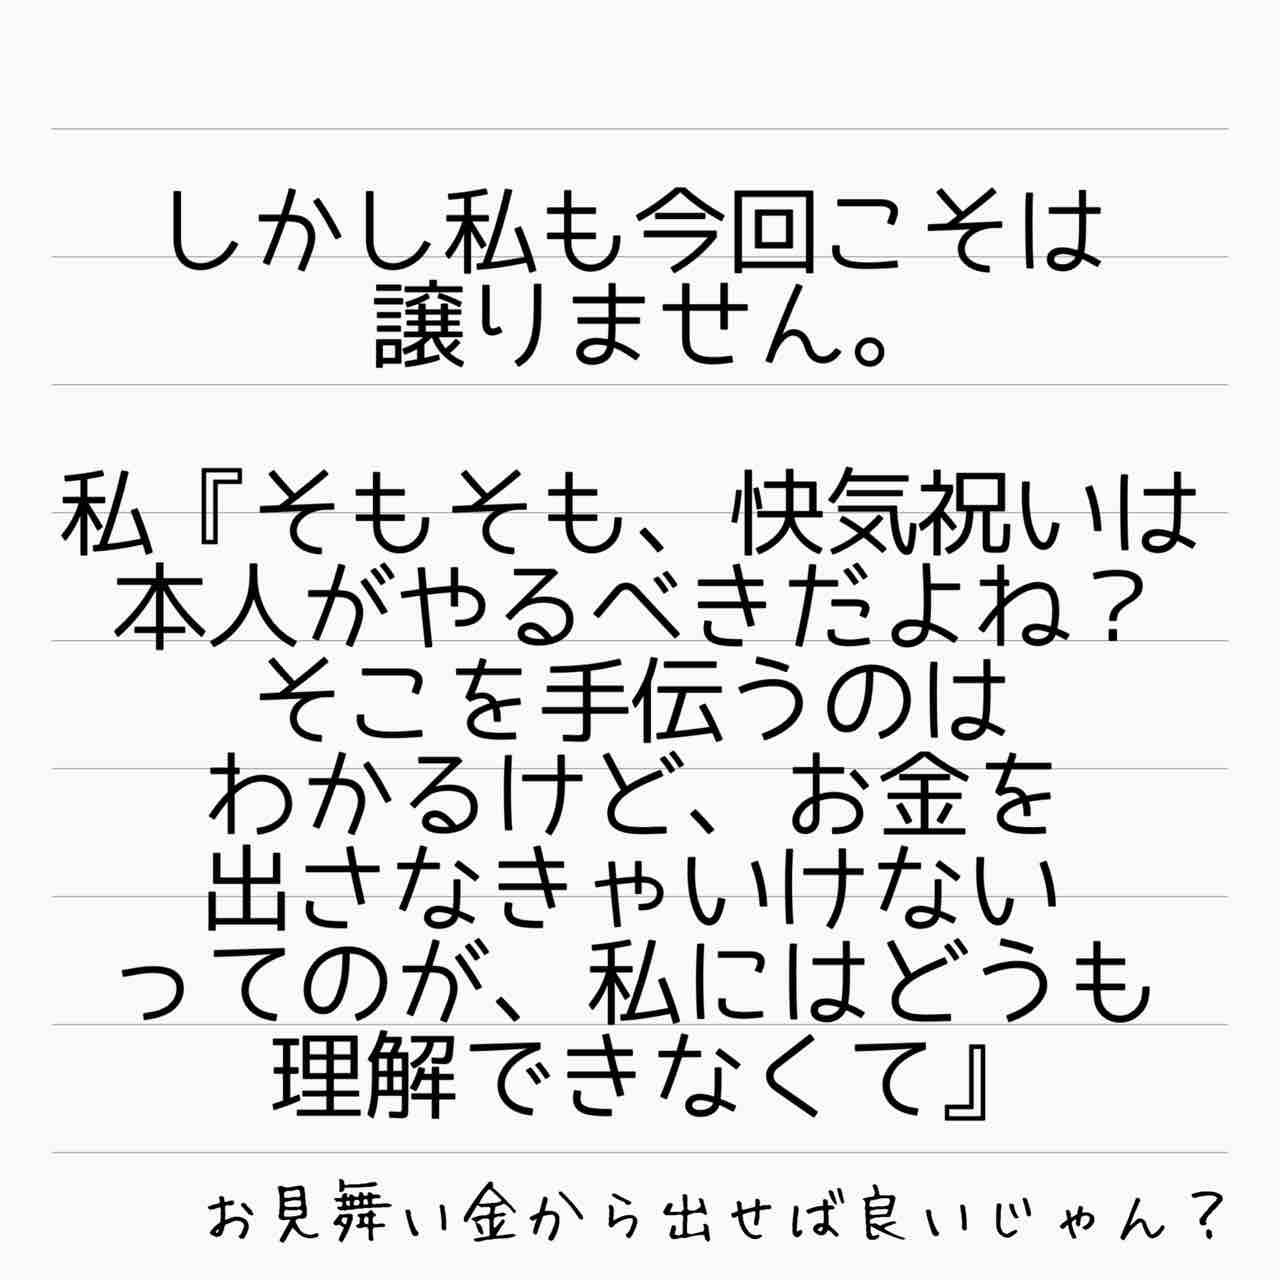 しかし私も今回こそは
譲りません。
私『そもそも、快気祝いは
本人がやるべきだよね？
そこを手伝うのは
わかるけど、お金を
出さなきゃいけない
ってのが、私にはどうも
理解できなくて』
お見舞い金から出せば良いじゃん？